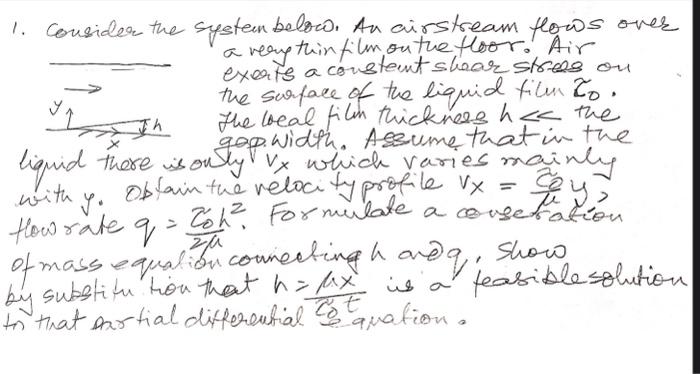 1. Consider the system below. An airstream flows over
a very thin film on the floor. Air
exerts a constant shear stress on
the surface of the liquid film τ₀.
y h The local film thickness h << the
x gap width. Assume that in the
liquid there is only vₓ which varies mainly
with y. Obtain the velocity profile vₓ = τ₀y/μ,
flow rate q = τ₀h²/2μ. Formulate a conservation
of mass equation connecting h and q. Show
by substitution that h = μx/τ₀t is a feasible solution
to that partial differential equation.